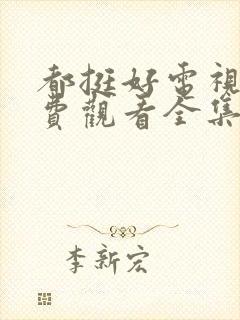 都挺好電視
費觀看全集
李新宏